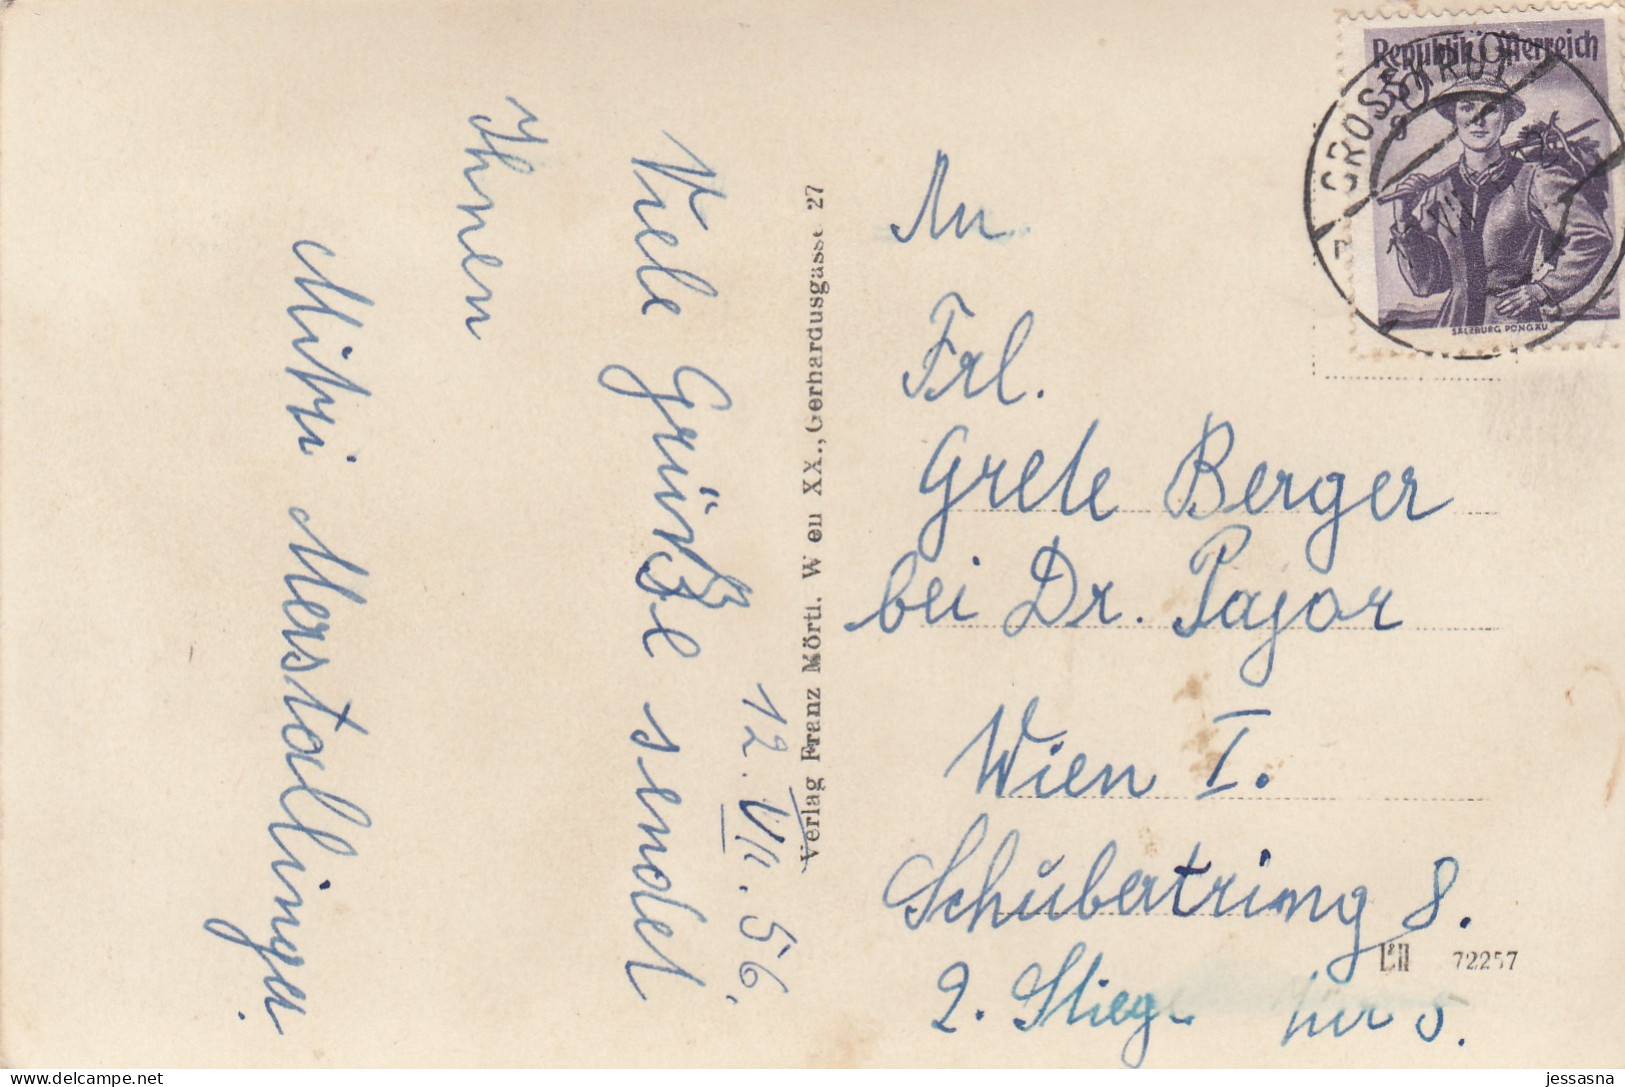 Viele Grüße sendet
Ihnen
Mitzi Merstallinger.
12. VII. 56.
Verlag Franz Mörtl. W en XX., Gerhardusgasse 27
An
Frl.
Grete Berger
bei Dr. Pajor
Wien I.
Schubertring 8.
2. Stiege Tür 5.
72257
Republik Österreich
SALZBURG PONGAU
GROSSKRUT
jessasna